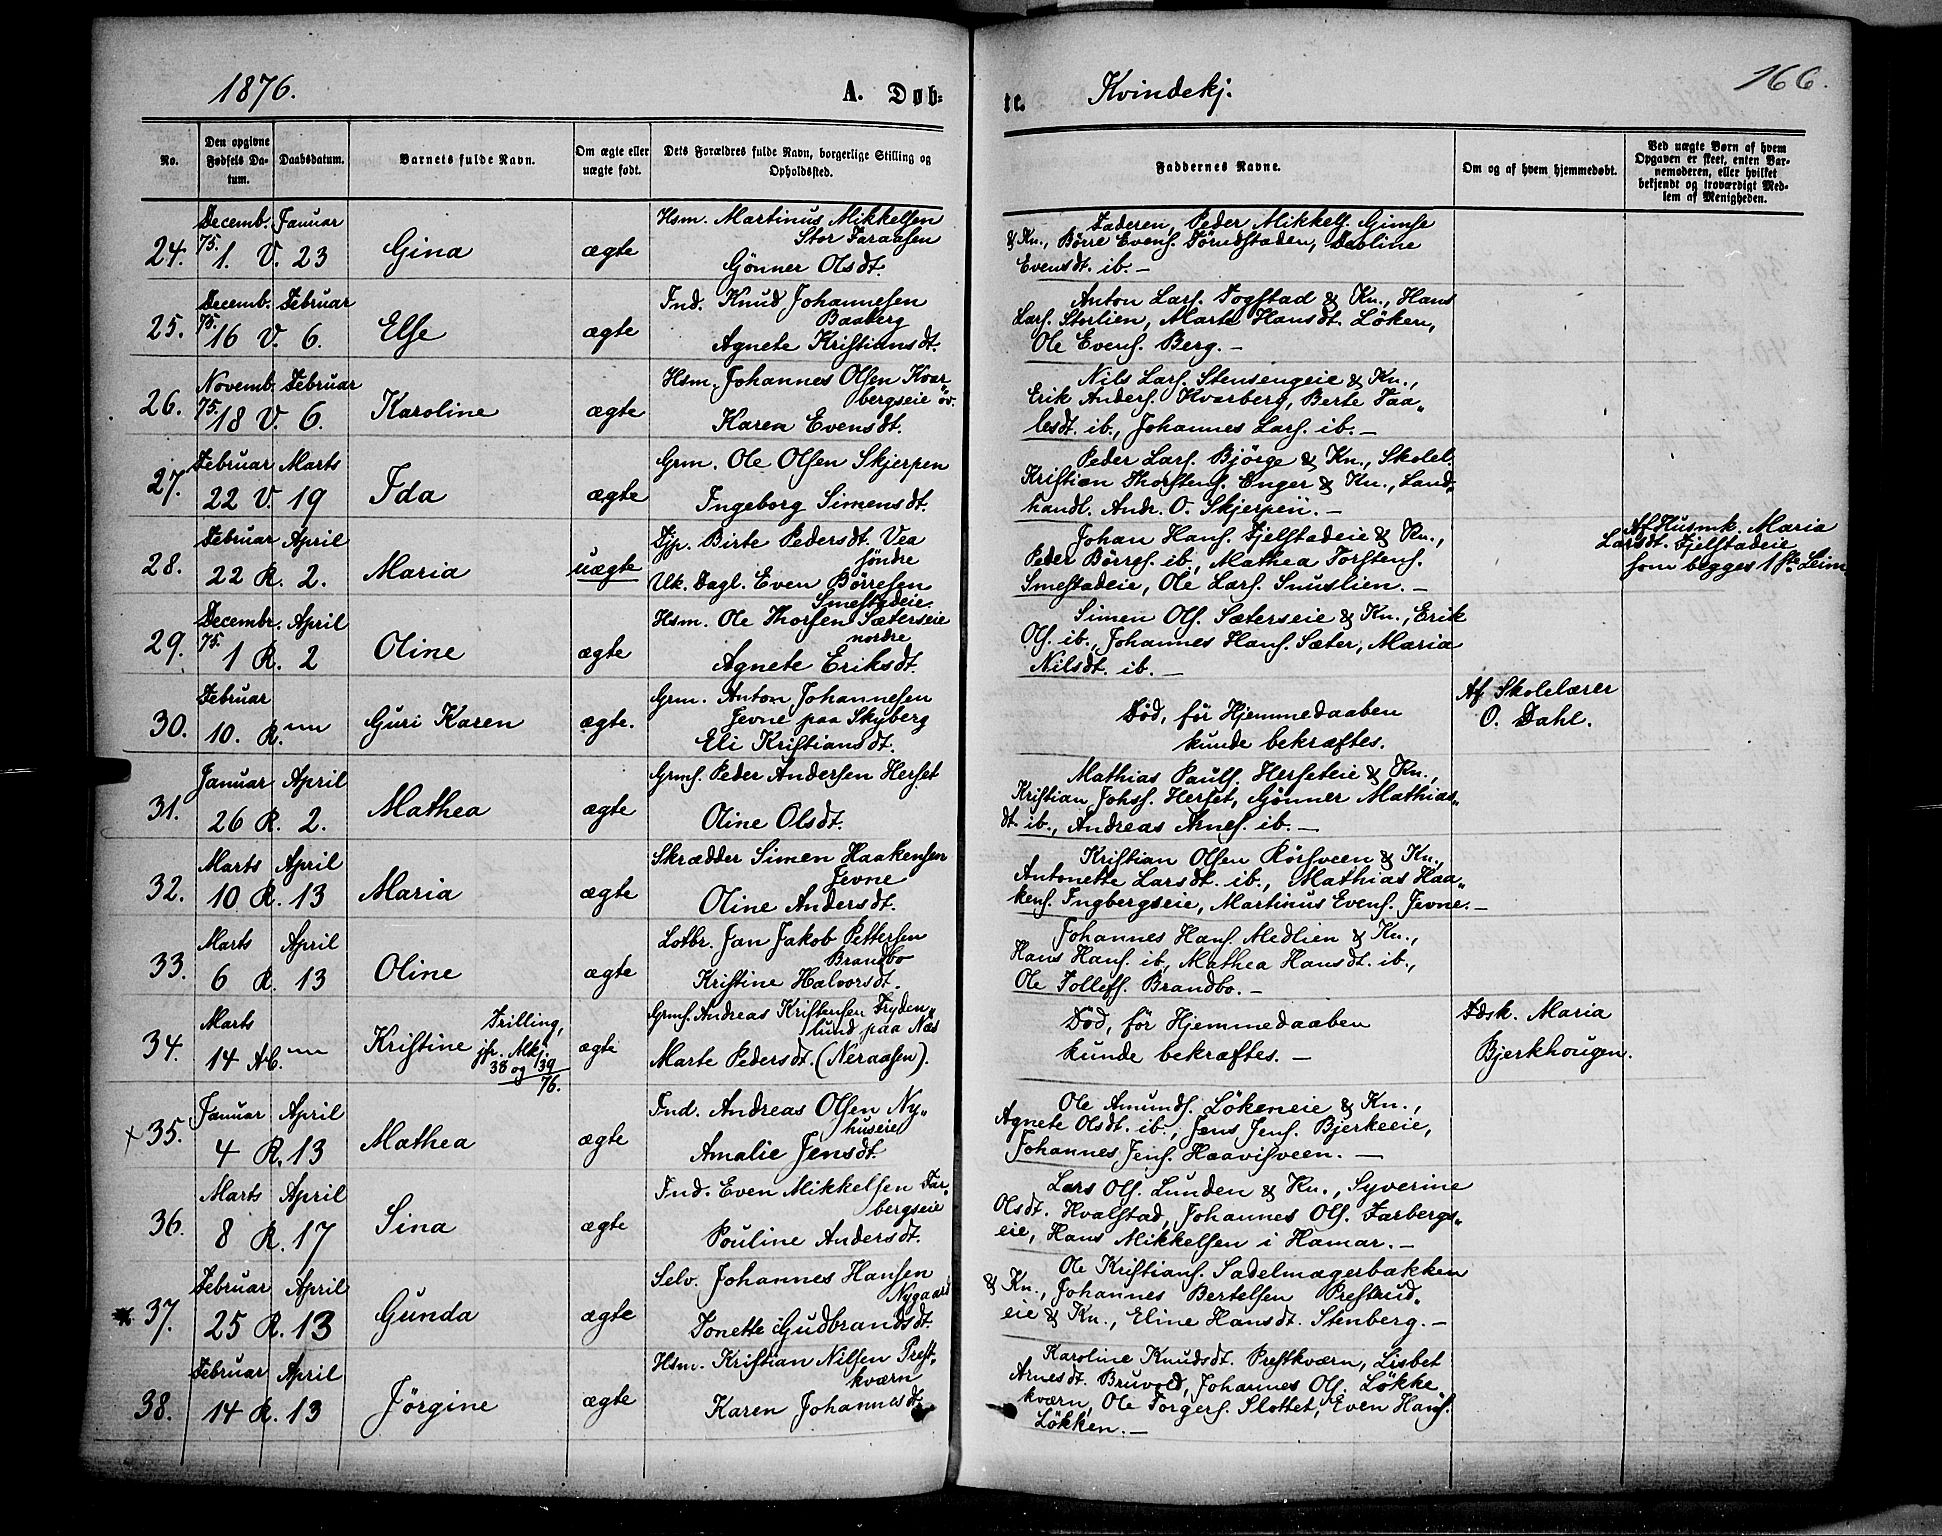 1876. A. Døb= te. Kvindekj. 166.
No.
Den opgivne Fødsels Da-tum.
Daabsdatum.
Barnets fulde Navn.
Om ægte eller uægte født.
Dets Forældres fulde Navn, borgerlige Stilling og Opholdssted.
Faddernes Navne.
Om og af hvem hjemmedøbt.
Ved uægte Børn af hvem Opgaven er skeet, enten Bar-nemoderen, eller hvilket bekjendt og troværdigt Med-lem af Menigheden.
24. Decemb. 75. 1. V. Januar 23 Gina ægte
Hsm. Martinus Mikkelsen
Stor Faraasen
Gönner Olsdt.
Faderen, Peder Mikkels. Gimse
& Kn., Börre Evens. Töndstaden, Karoline
Evensdt. ib. –
25. Decemb. 75. 16 V. Februar 6. Else ægte
Ind. Knud Johannesen
Baaberg
Agnete Kristiansdt.
Anton Lars. Togstad & Kn., Hans
Lars. Storlien, Marte Hansdt. Löken,
Ole Evens. Berg. –
26. Novemb. 75. 18 V. Februar 6. Karoline ægte
Hsm. Johannes Olsen Kvar„
bergseie öv.
Karen Evensdt.
Nils Lars. Stensengeie & Kn.,
Erik Anders. Kvarberg, Berte Taa„
lesdt. ib., Johannes Lars. ib. –
27. Februar 22 V. Marts 19 Ida ægte
Grm. Ole Olsen Skjerpen
Ingeborg Simensdt.
Peder Lars. Björge & Kn., Skolel.
Kristian Thorstens. Enger & Kn., Land„
handl. Andr. O. Skjerpen. –
28. Februar 22 R. April 2. Maria uægte
Tjp. Birte Pedersdt. Vea
söndre
Uk. Dagl. Even Börresen
Smestadeie.
Johan Hans. Fjelstadeie & Kn.,
Peder Börres. ib., Mathea Torstens.
Smestadeie, Ole Lars. Snuslien. –
Af Husmk. Maria
Larsdt. Fjelstadeie
som begges 1ste Leierm.
29. Decembr. 75. 1 R. April 2 Oline ægte
Hsm. Ole Thorsen Sæterseie
nordre
Agnete Eriksdt.
Simen Ols. Sæterseie & Kn., Erik
Ols. ib., Johannes Hans. Sæter, Maria
Nilsdt. ib. –
30. Februar 10. R. „„ Guri Karen ægte.
Grm. Anton Johannesen
Jevne paa Skyberg
Eli Kristiansdt.
Död, för Hjemmedaaben
kunde bekræftes.
Af Skolelærer
O. Dahl.
31. Januar 26 R. April 2. Mathea ægte
Grms. Peder Andersen Herset
Oline Olsdt.
Mathias Pauls. Herseteie & Kn.,
Kristian Johs. Herset, Gönner Mathias„
dt. ib., Andreas Arnes. ib. –
32. Marts 10 R. April 13 Maria ægte
Skrædder Simen Haakensen
Jevne
Oline Andersdt.
Kristian Olsen Rörsveen & Kn.,
Antonette Larsdt. ib., Mathias Haa„
kens. Ingbergseie, Martinus Evens. Jevne. –
33. Marts 6 R. April 13 Oline ægte
Lotbr. Jan Jakob Pettersen
Brandbo
Kristine Halvorsdt.
Johannes Hans. Medlien & Kn.,
Hans Hans. ib., Mathea Hansdt. ib.,
Ole Tollefs. Brandbo. –
34. Marts 14 „„ Kristine Trilling,
jfr. Mkj.
38 og 39
76. ægte
Grms. Andreas Kristensen Fryden„
lund paa Næs
Marte Pedersdt. (Neraasen).
Död, för Hjemmedaaben
kunde bekræftes. –
Fdsk. Maria
Bjerkhougen.
35. Januar 4 R. April 13 Mathea ægte
Ind. Andreas Olsen Ny„
huseie
Amalie Jensdt
Ole Amunds. Lökeneie & Kn.,
Agnete Olsdt. ib., Jens Jens. Bjerkeeie,
Johannes Jens. Haavisveen. –
36. Marts 8 R. April 17 Sina ægte
Ind. Even Mikkelsen Far„
bergseie
Pouline Andersdt.
Lars Ols. Lunden & Kn., Syverine
Olsdt. Hvalstad, Johannes Ols. Farbergs„
eie, Hans Mikkelsen i Hamar. –
37. Februar 25 R. April 13 Gunda ægte
Selv. Johannes Hansen
Nygaard
Tonette Gudbrandsdt.
Ole Kristians. Sadelmagerbakken
& Kn., Johannes Bertelsen Prestrud„
eie & Kn., Eline Hansdt. Stenberg. –
38. Februar 14 R. April 13 Jörgine ægte
Hsm. Kristian Nilsen Prest„
kværn
Karen Johannesdt.
Karoline Knudsdt. Prestkværn, Lisbet
Arnesdt. Bruvold, Johannes Ols. Lökke
kværn, Ole Torgers. Slottet, Even Hans.
Lökken. –